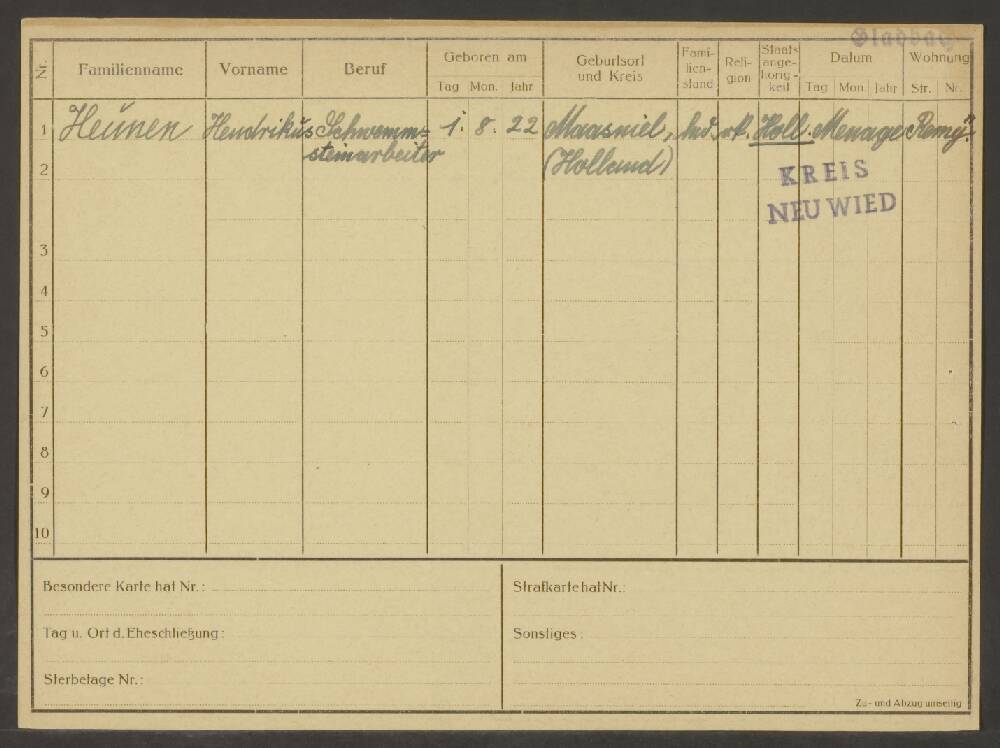 Gladbach
Nr. Familienname Vorname Beruf Geboren am Tag Mon. Jahr Geburtsort und Kreis Fami-lien-stand Reli-gion Staats-ange-hörig-keit Datum Tag Mon. Jahr Wohnung Str. Nr.
1 Heunen Hendrikus Schwemm- 1. 8. 22 Maasniel, led. rk. Holl. Menage Remy".
2 steinarbeiter (Holland)
KREIS
NEUWIED
3
4
5
6
7
8
9
10
Besondere Karte hat Nr.:
Strafkarte hat Nr.:
Tag u. Ort d. Eheschließung:
Sonstiges:
Sterbetage Nr.:
Zu- und Abzug umseitig